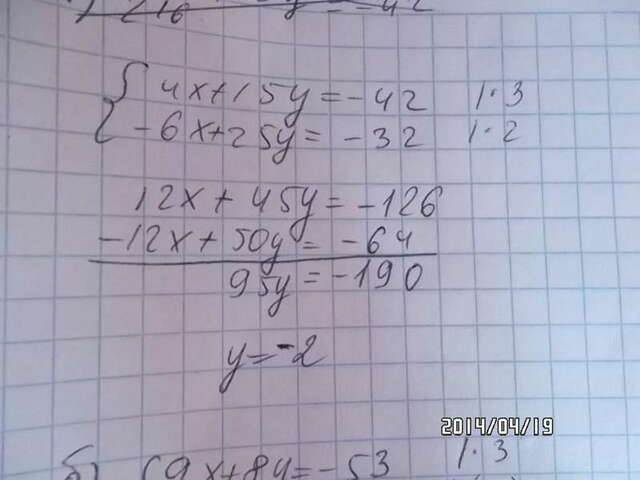 { 4x+15y=-42 |·3
-6x+25y=-32 |·2
12x+45y=-126
-12x+50y=-64
95y=-190
y=-2
2014/04/19
б) {9x+8y=-53 |·3